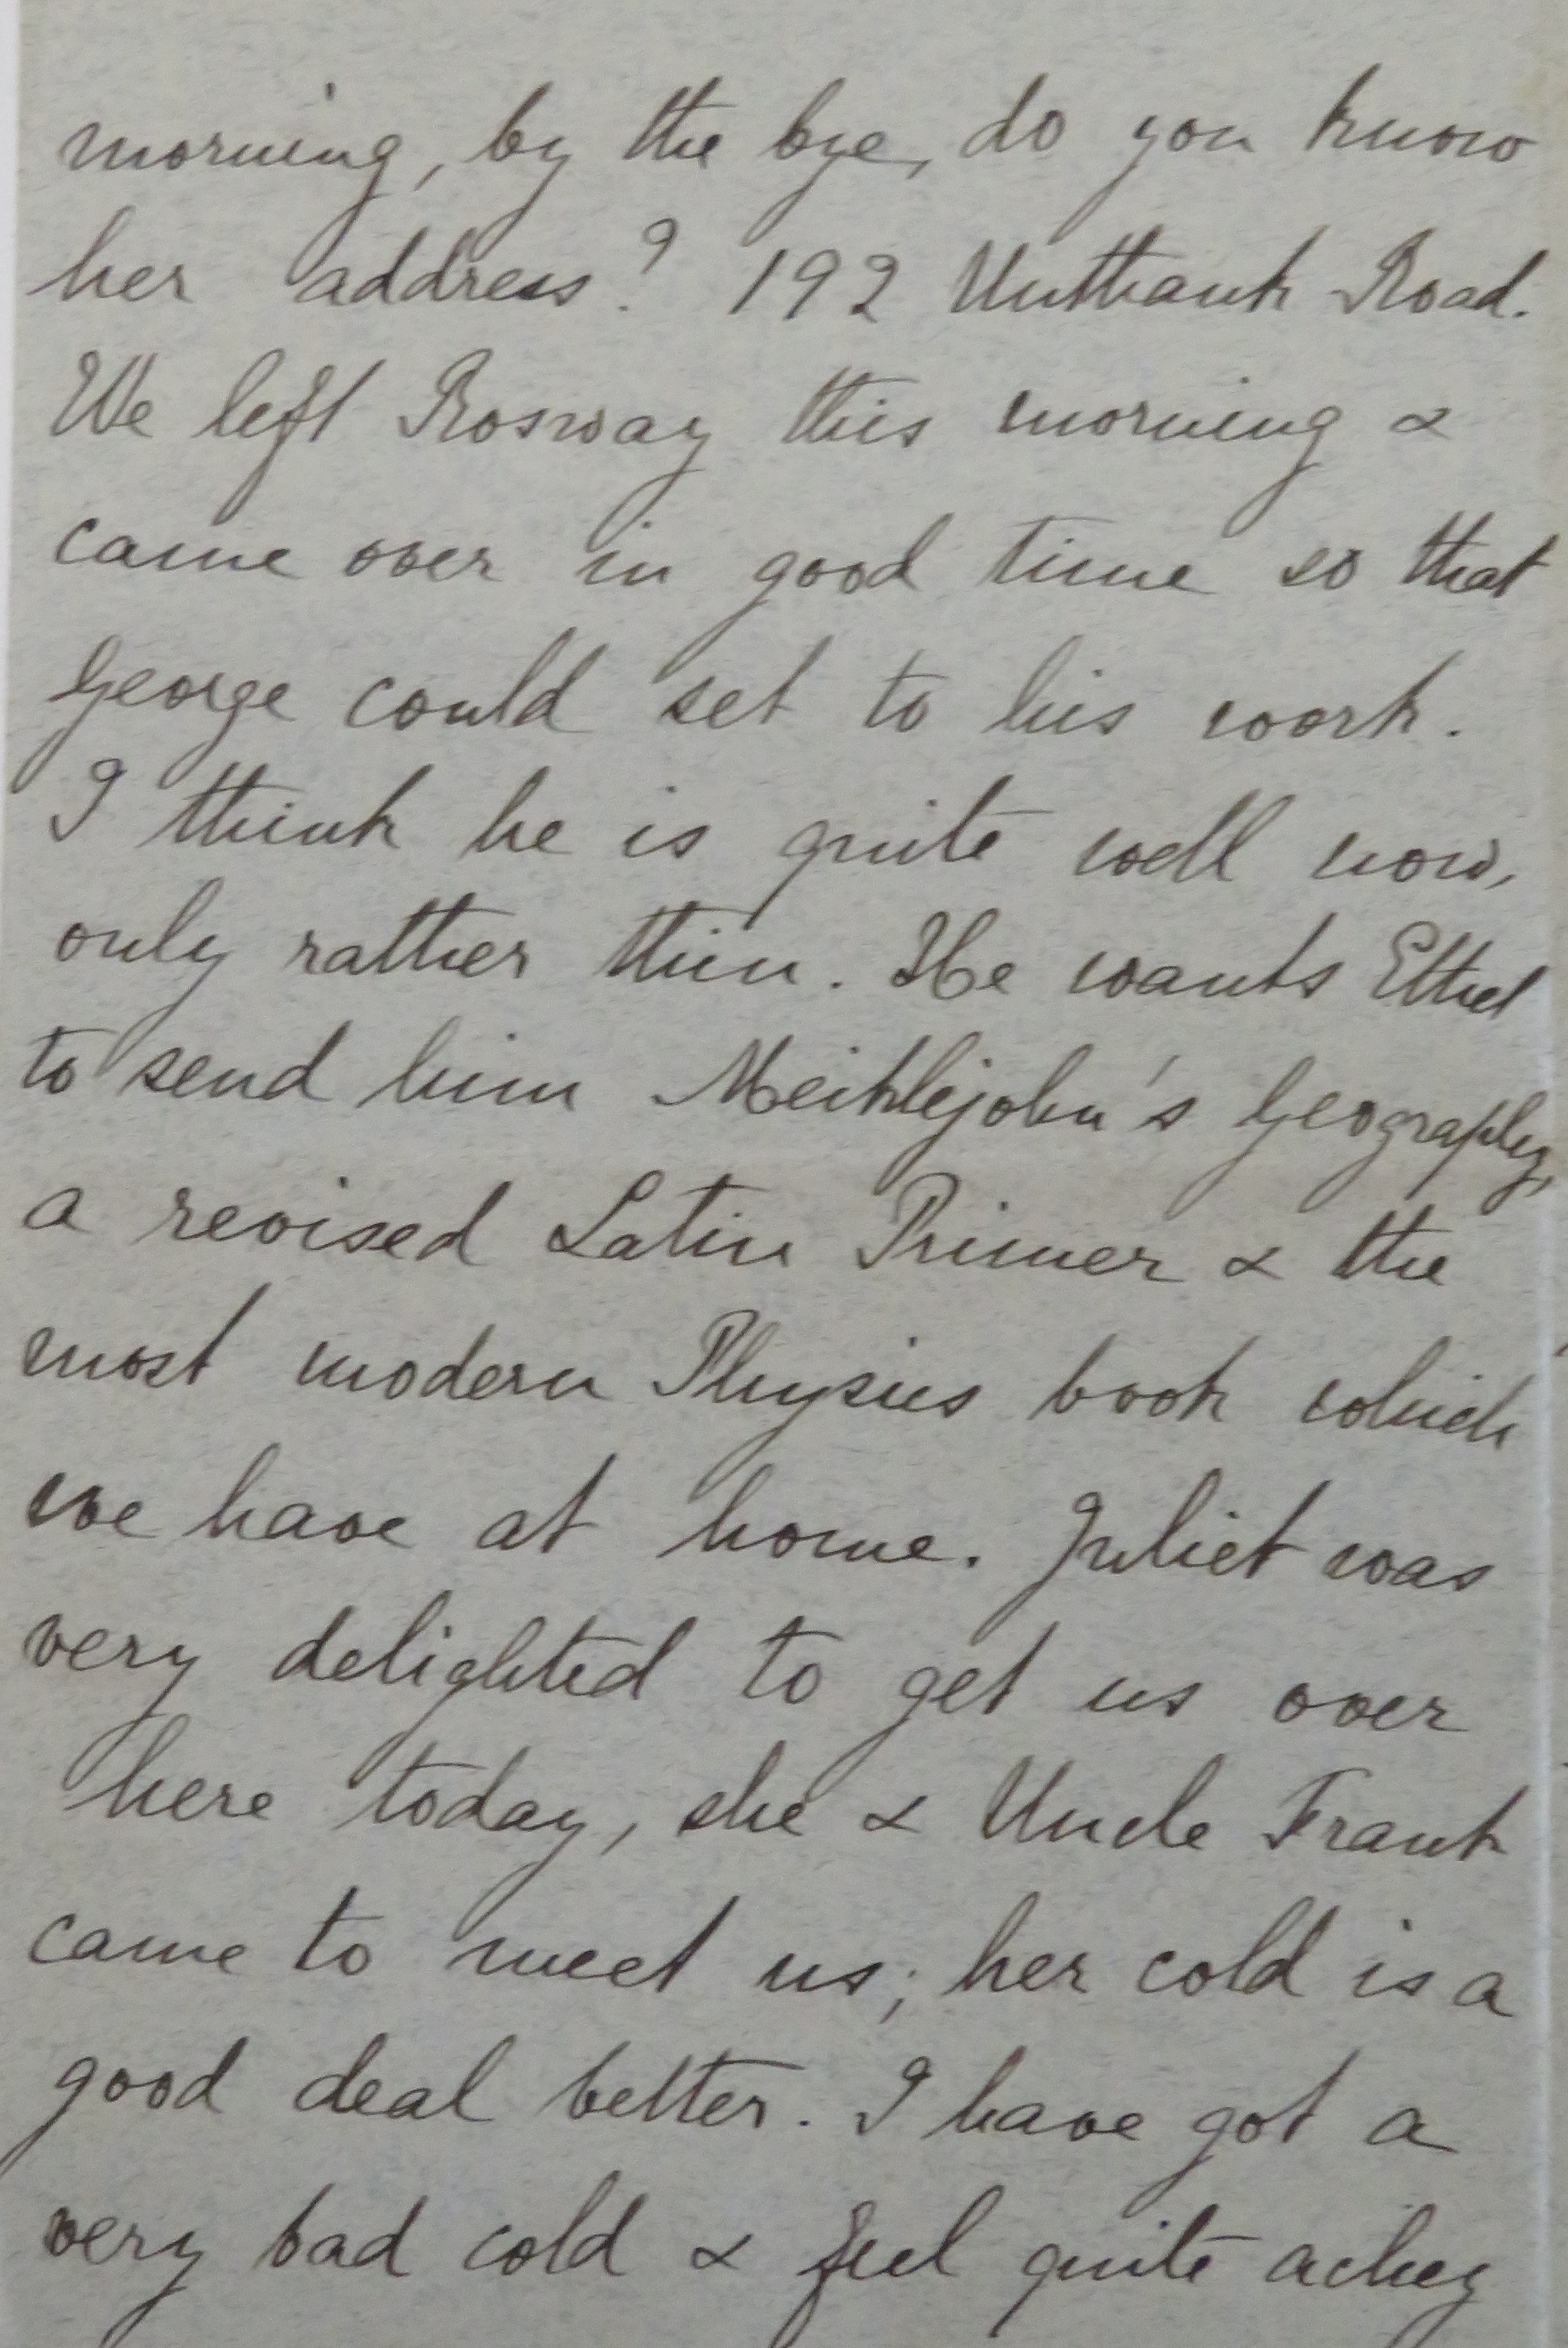 morning, by the bye, do you know
her address? 192 Unthank Road.
We left Rosway this morning &
came over in good time so that
George could set to his work.
I think he is quite well now,
only rather thin. He wants Ethel
to send him Meiklejohn's Geography,
a revised Latin Primer & the
most modern Physics book which
we have at home. Juliet was
very delighted to get us over
here today, she & Uncle Frank
came to meet us; her cold is a
good deal better. I have got a
very bad cold & feel quite achey